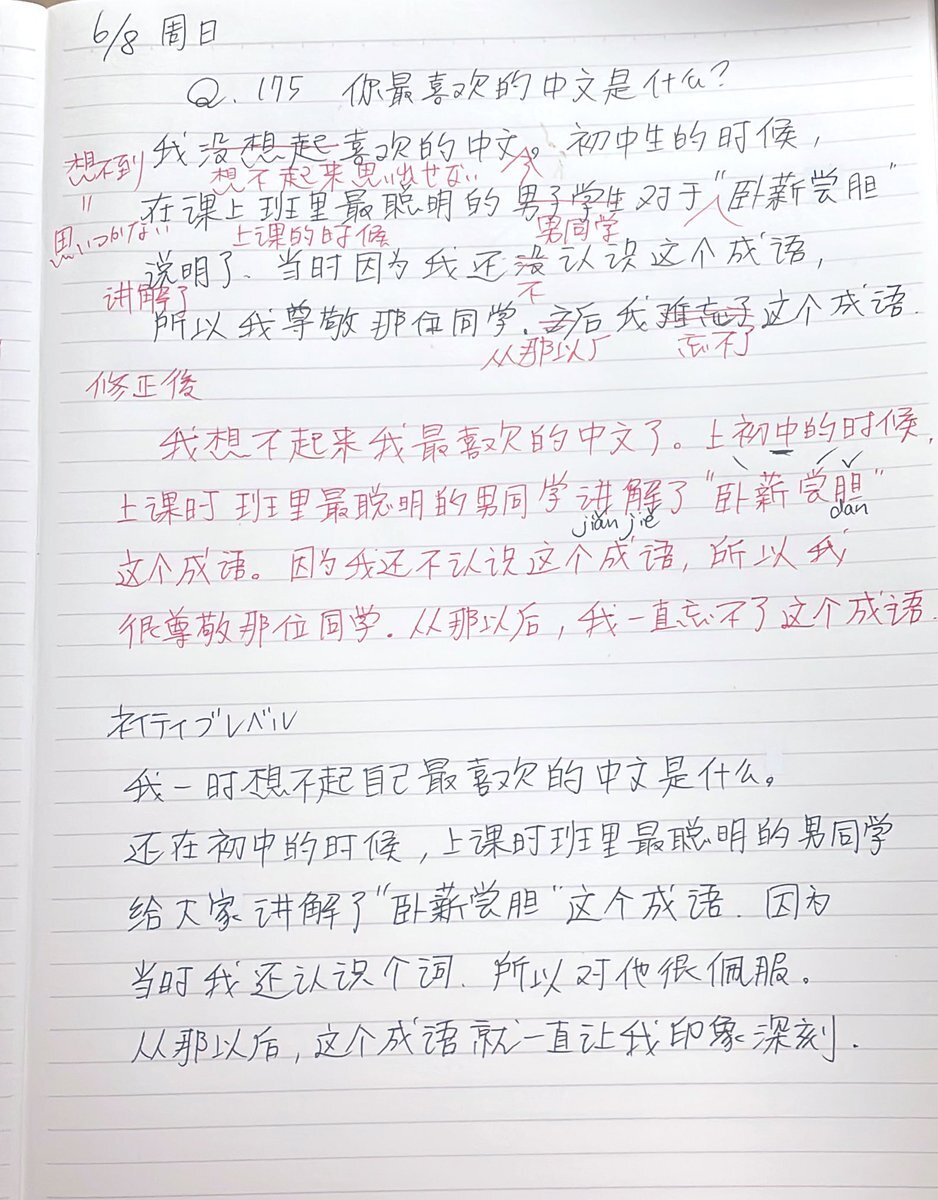 6/8 周日
Q. 175 你最喜欢的中文是什么?
我没想起喜欢的中文。初中生的时候,
想不到 想不起来 思い出せない
在课上班里最聪明的男子学生对于“卧薪尝胆”
〃
思いつかない 上课的时候 男同学
说明了. 当时因为我还没认识这个成语,
讲解了 不
所以我尊敬那位同学. 之后我难忘了这个成语.
从那以后 忘不了
修正後
我想不起来我最喜欢的中文了。上初中的时候,
上课时班里最聪明的男同学讲解了“卧薪尝胆”
jiǎn jiě dǎn
这个成语。因为我还不认识这个成语, 所以我
很尊敬那位同学. 从那以后, 我一直忘不了这个成语.
ネイティブレベル
我一时想不起自己最喜欢的中文是什么。
还在初中的时候, 上课时班里最聪明的男同学
给大家讲解了“卧薪尝胆”这个成语. 因为
当时我还认识个词. 所以对他很佩服。
从那以后, 这个成语就一直让我印象深刻.